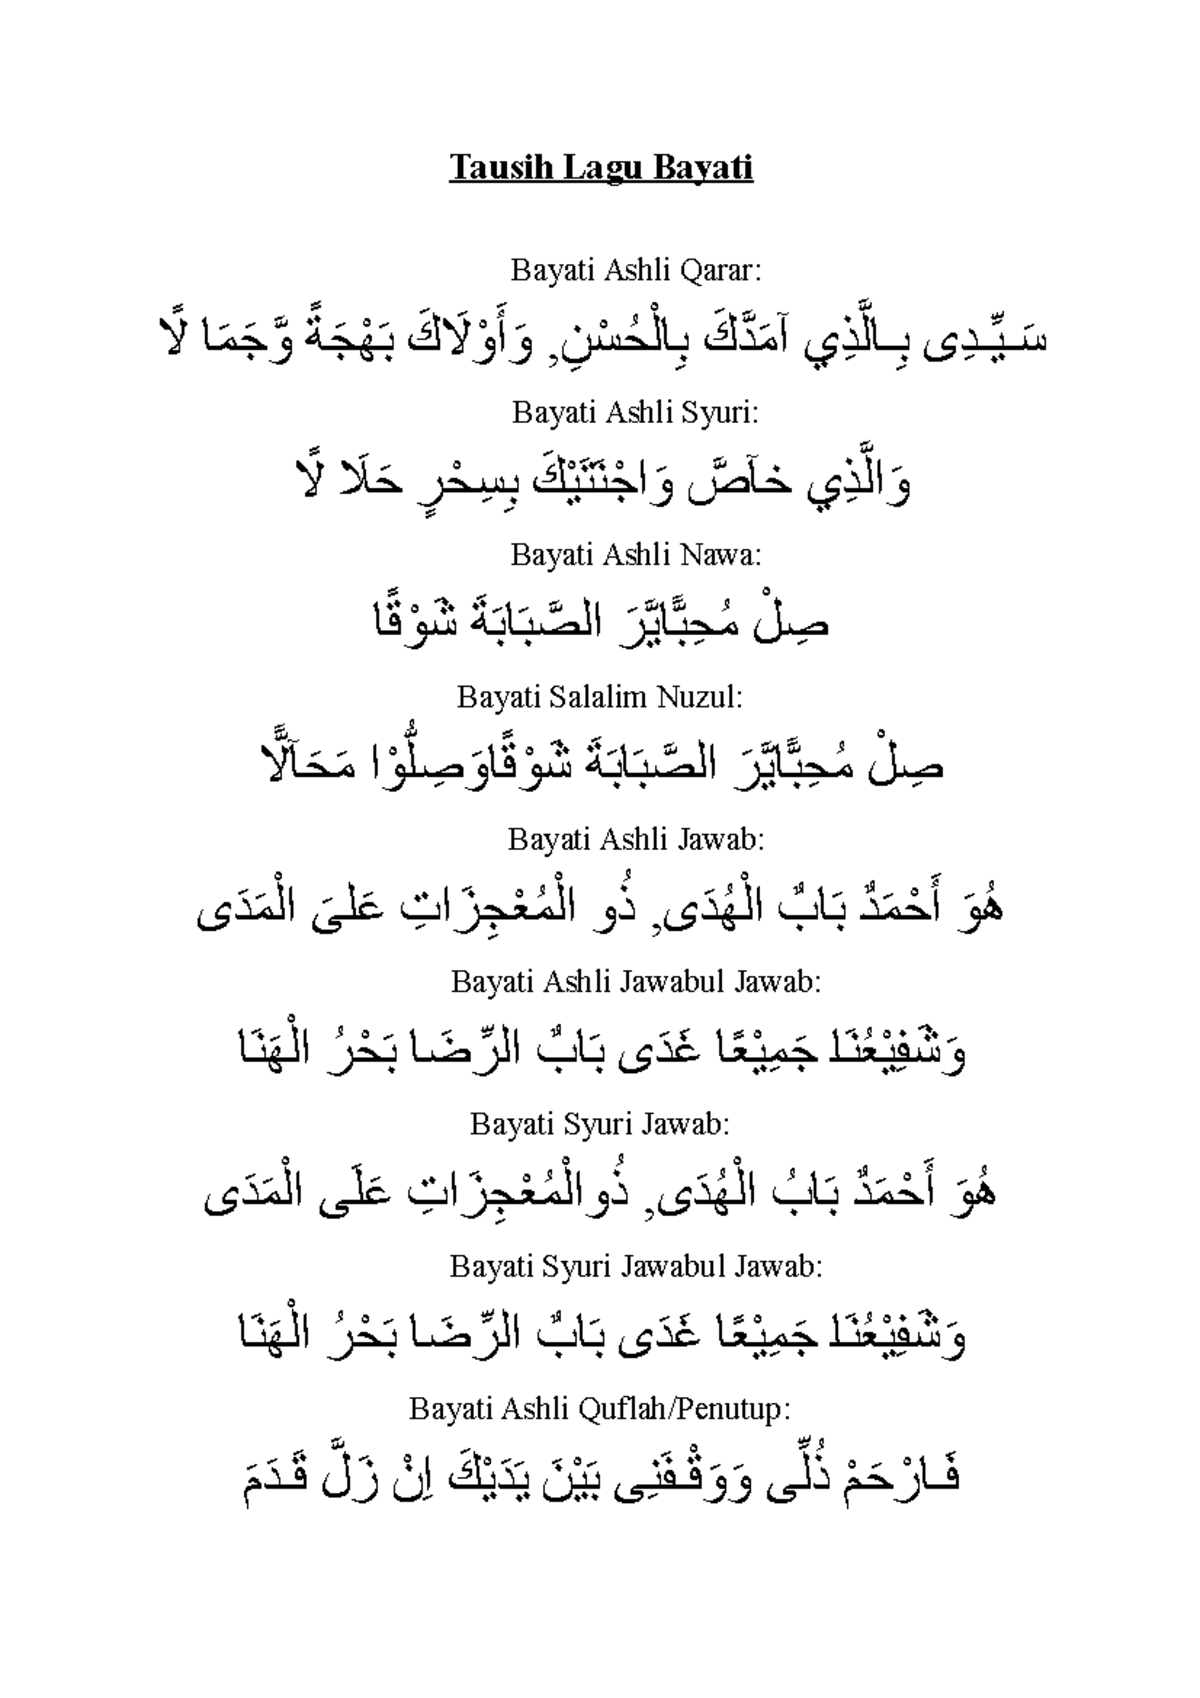 Tausih Lagu Bayati
Bayati Ashli Qarar:
سَــيِّــدِى بِــالَّذِي آمَدَّكَ بِالْحُسْنِ, وَأَوْلَاكَ بَهْجَةً وَّجَمَا لًا
Bayati Ashli Syuri:
وَالَّذِي خآصَّ وَاجْنَتَيْكَ بِسِحْرٍ حَلَا لًا
Bayati Ashli Nawa:
صِلْ مُحِبًّايَّرَ الصَّبَابَةَ شَوْقًا
Bayati Salalim Nuzul:
صِلْ مُحِبًّايَّرَ الصَّبَابَةَ شَوْقًاوَصِلُّوْا مَحَآلًّا
Bayati Ashli Jawab:
هُوَ أَحْمَدٌ بَابٌ الْهُدَى, ذُو الْمُعْجِزَاتِ عَلىَ الْمَدَى
Bayati Ashli Jawabul Jawab:
وَشَفِيْعُنَا جَمِيْعًا غَدَى بَابٌ الرِّضَا بَحْرُ الْهَنَا
Bayati Syuri Jawab:
هُوَ أَحْمَدٌ بَابُ الْهُدَى, ذُوالْمُعْجِزَاتِ عَلَى الْمَدَى
Bayati Syuri Jawabul Jawab:
وَشَفِيْعُنَا جَمِيْعًا غَدَى بَابٌ الرِّضَا بَحْرُ الْهَنَا
Bayati Ashli Quflah/Penutup:
فَــارْحَمْ ذُلِّى وَوَقْــفَنِى بَيْنَ يَدَيْكَ اِنْ زَلَّ قَــدَمَ